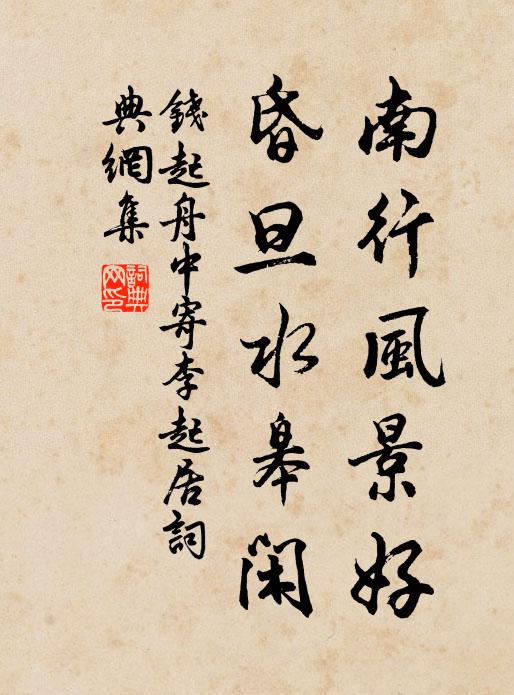 南行風景好
昏旦水皋閑
錢起舟中寄李起居詞
典網集
詞典
网印